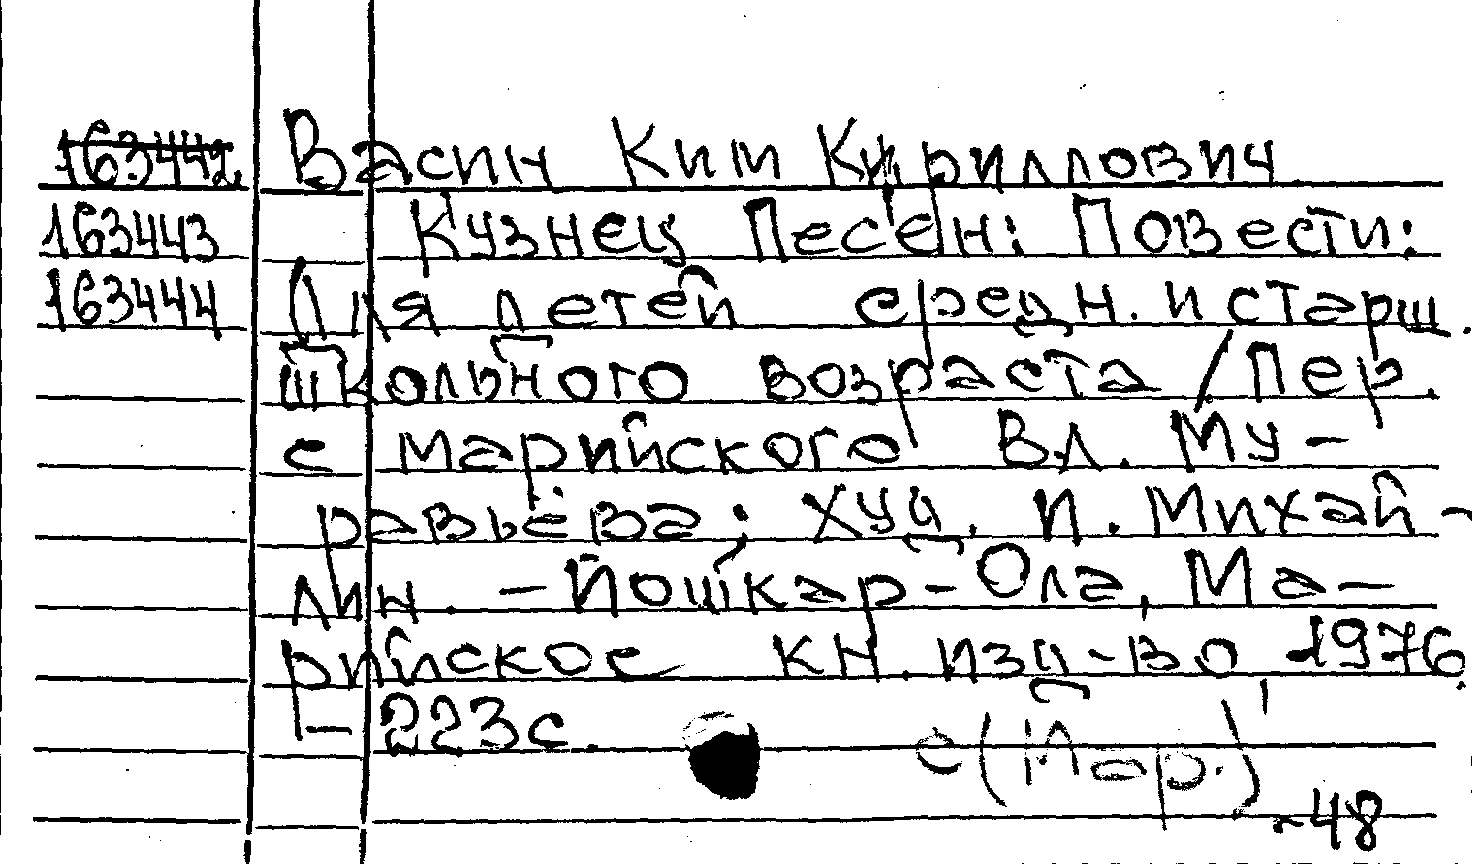 163442. Васин Ким Кириллович
163443 Кузнец Песен: Повести:
163444 Для детей средн. и старш.
школьного возраста / Пер.
с марийского Вл. Му-
равьёва; худ. И. Михай-
лин. - Йошкар-Ола, Ма-
рийское кн. изд-во, 1976.
- 223с. с(Мар.)
-48